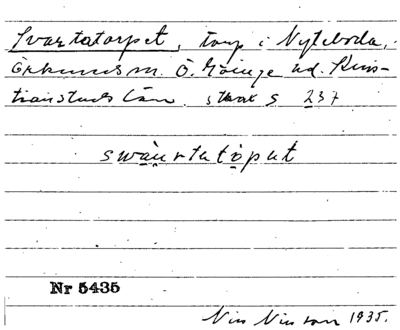 Svartatorpet, torp i Nyteboda,
Örkuneds sn. Ö. Göinge hd. Kris-
tianstads län. s 237
swàu̯rtatòpat
Nr 5435
Nils Nilsson 1935.